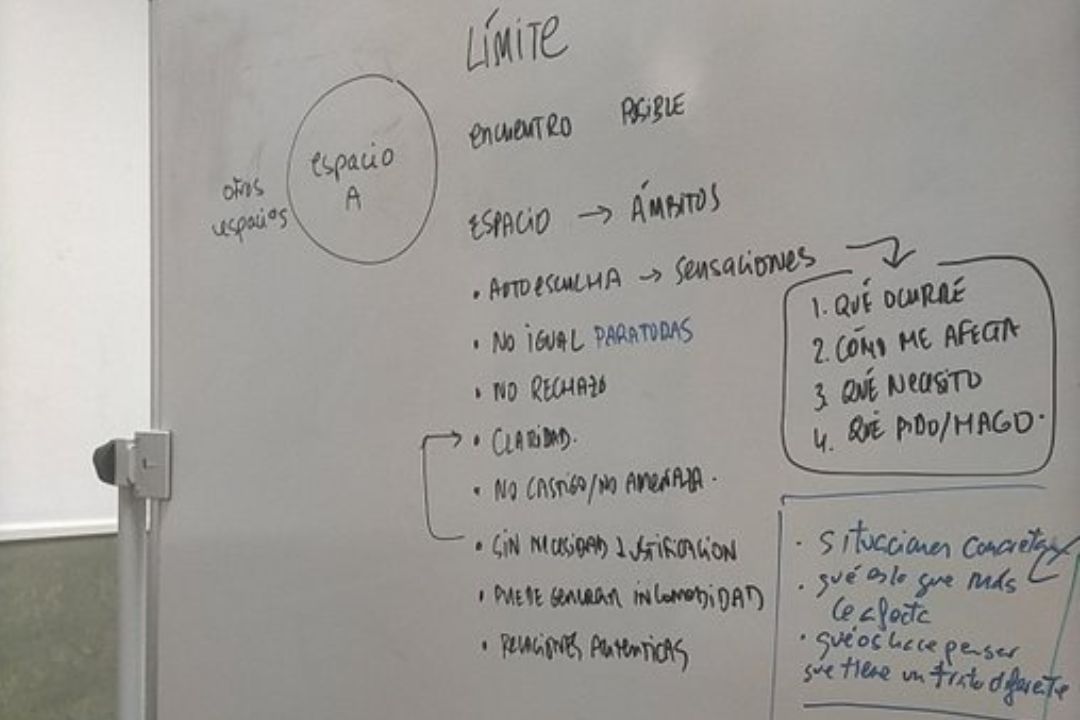 LÍMITE
encuentro posible
espacio A
otros espacios
ESPACIO → ÁMBITOS
• AUTOESCUCHA → sensaciones
• NO IGUAL PARA TODAS
• NO RECHAZO
• CLARIDAD.
• NO CASTIGO/NO AMENAZA.
• SIN NECESIDAD JUSTIFICACIÓN
• PUEDE GENERAR INCOMODIDAD
• RELACIONES AUTÉNTICAS
1. QUÉ OCURRE
2. CÓMO ME AFECTA
3. QUÉ NECESITO
4. QUÉ PIDO/HAGO.
• Situaciones concretas
• qué es lo que más
le afecta
• qué os hace pensar
que tiene un trato diferente